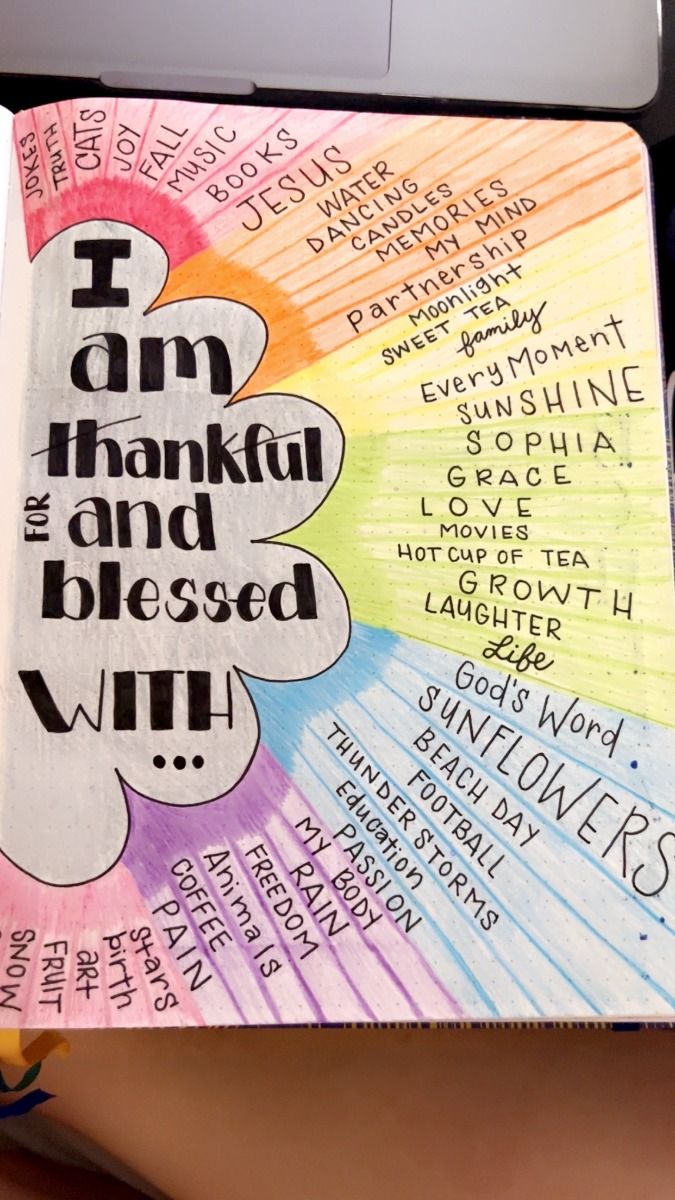 I
am
thankful
FOR
and
blessed
WITH
...
JOKES
TRUTH
CATS
JOY
FALL
MUSIC
BOOKS
JESUS
WATER
DANCING
CANDLES
MEMORIES
MY MIND
Partnership
Moonlight
SWEET TEA
family
Every Moment
SUNSHINE
SOPHIA
GRACE
LOVE
MOVIES
HOT CUP OF TEA
GROWTH
LAUGHTER
Life
God's Word
SUNFLOWERS
BEACH DAY
FOOTBALL
THUNDER STORMS
Education
PASSION
MY BODY
RAIN
FREEDOM
Animals
COFFEE
PAIN
Stars
birth
art
FRUIT
SNOW